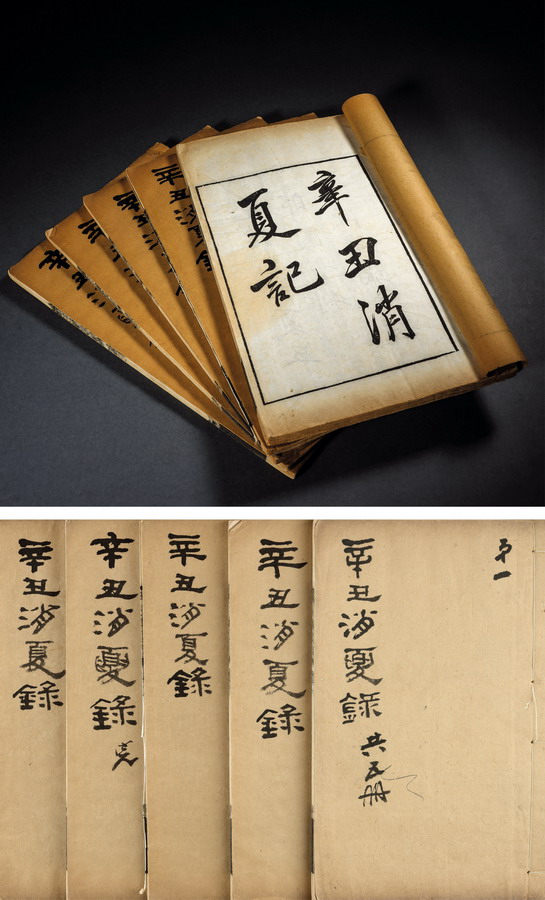 辛丑消
夏記
第一
辛丑消夏錄 共五冊
辛丑消夏錄
辛丑消夏錄
辛丑消夏錄 完
辛丑消夏錄